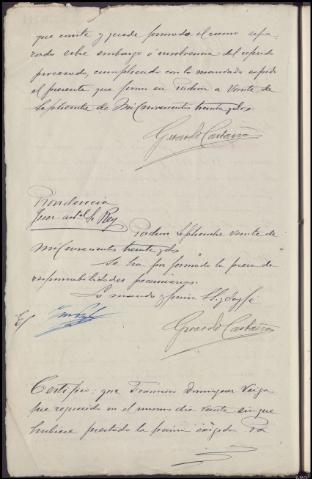 que conste y quede formado el ramo sepa-
rado sobre embargo o insolvencia del
procesado, cumpliendo con lo mandado expido
el presente que firmo en Padron a veinte de
Septiembre de mil novecientos treinta y dos
Gerardo
Providencia
Juez
Padron, Septiembre veinte de
mil novecientos treinta y dos
Se ha por formada la pieza de
responsabilidades pecuniarias.
Lo mando y firma S.Sª doy fe
Gerardo
Certifico: que Francisco Dominguez
fue requerido en el mismo dia veinte sin que
hubiese prestado la fianza exigida